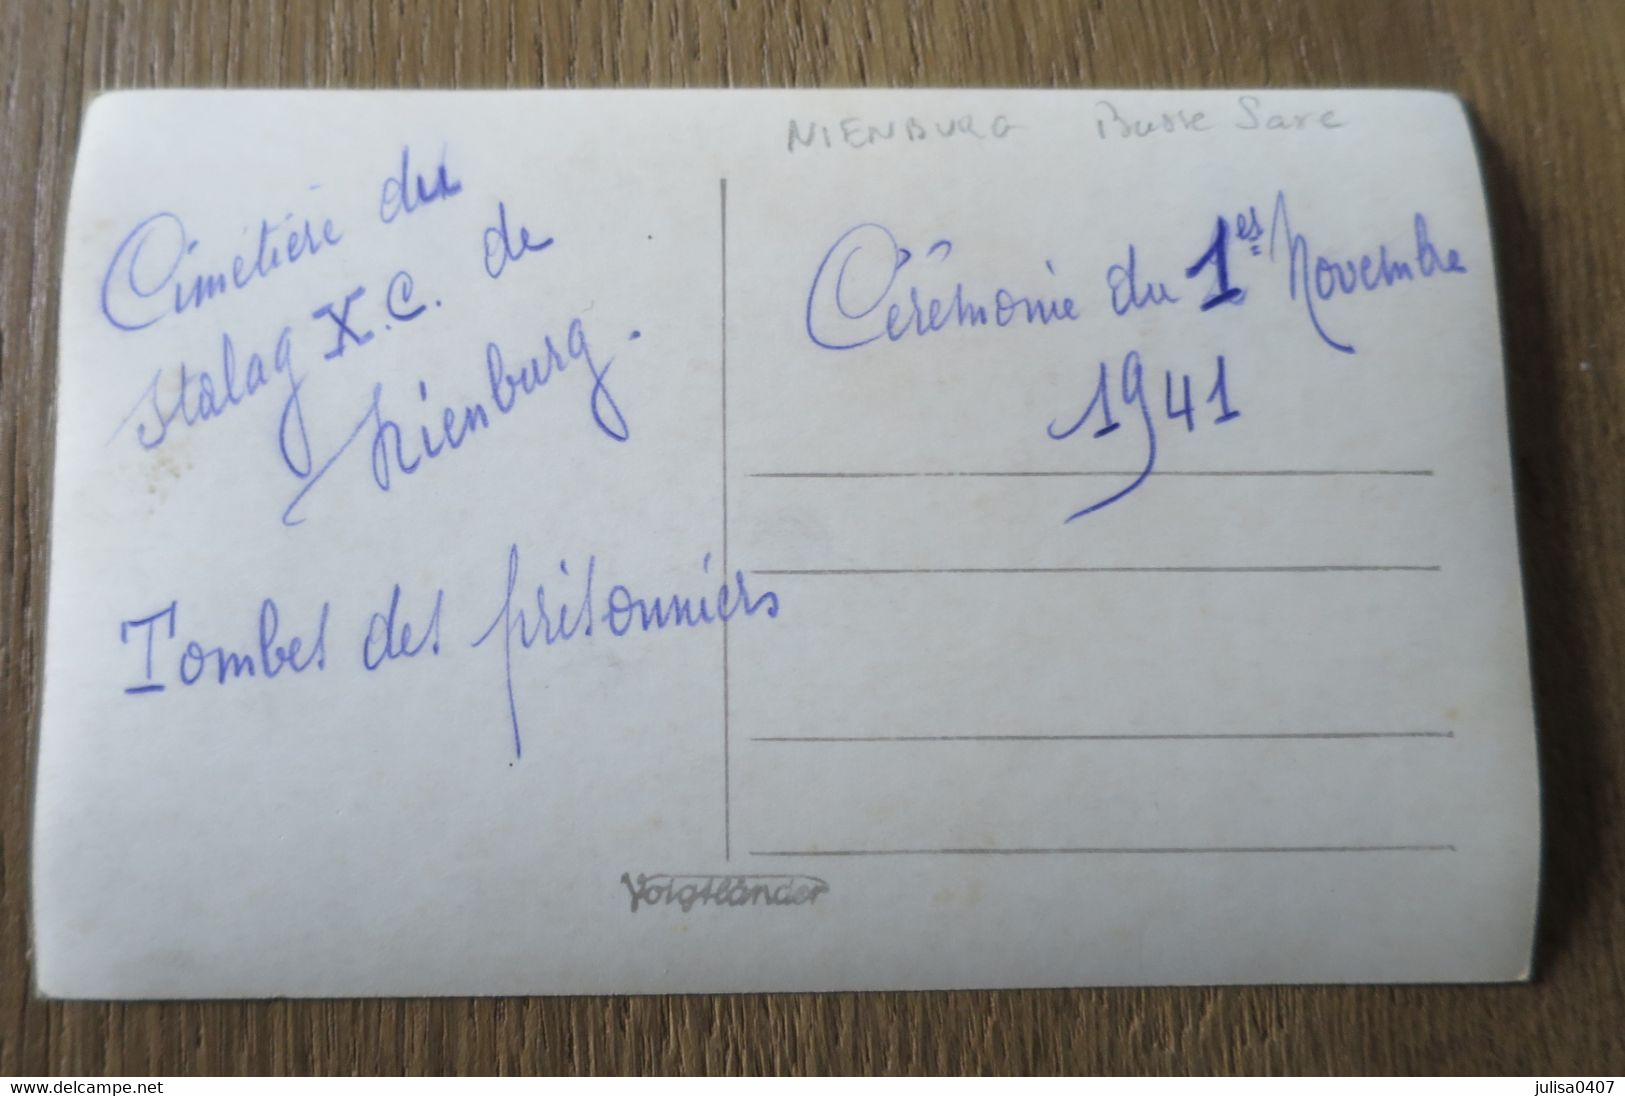 NIENBURG Basse Saxe
Cimetière du
Stalag X.C. de
Nienburg.
Tombes des prisonniers
Cérémonie du 1er Novembre
1941
Voigtländer
delcampe.net
julisa0407